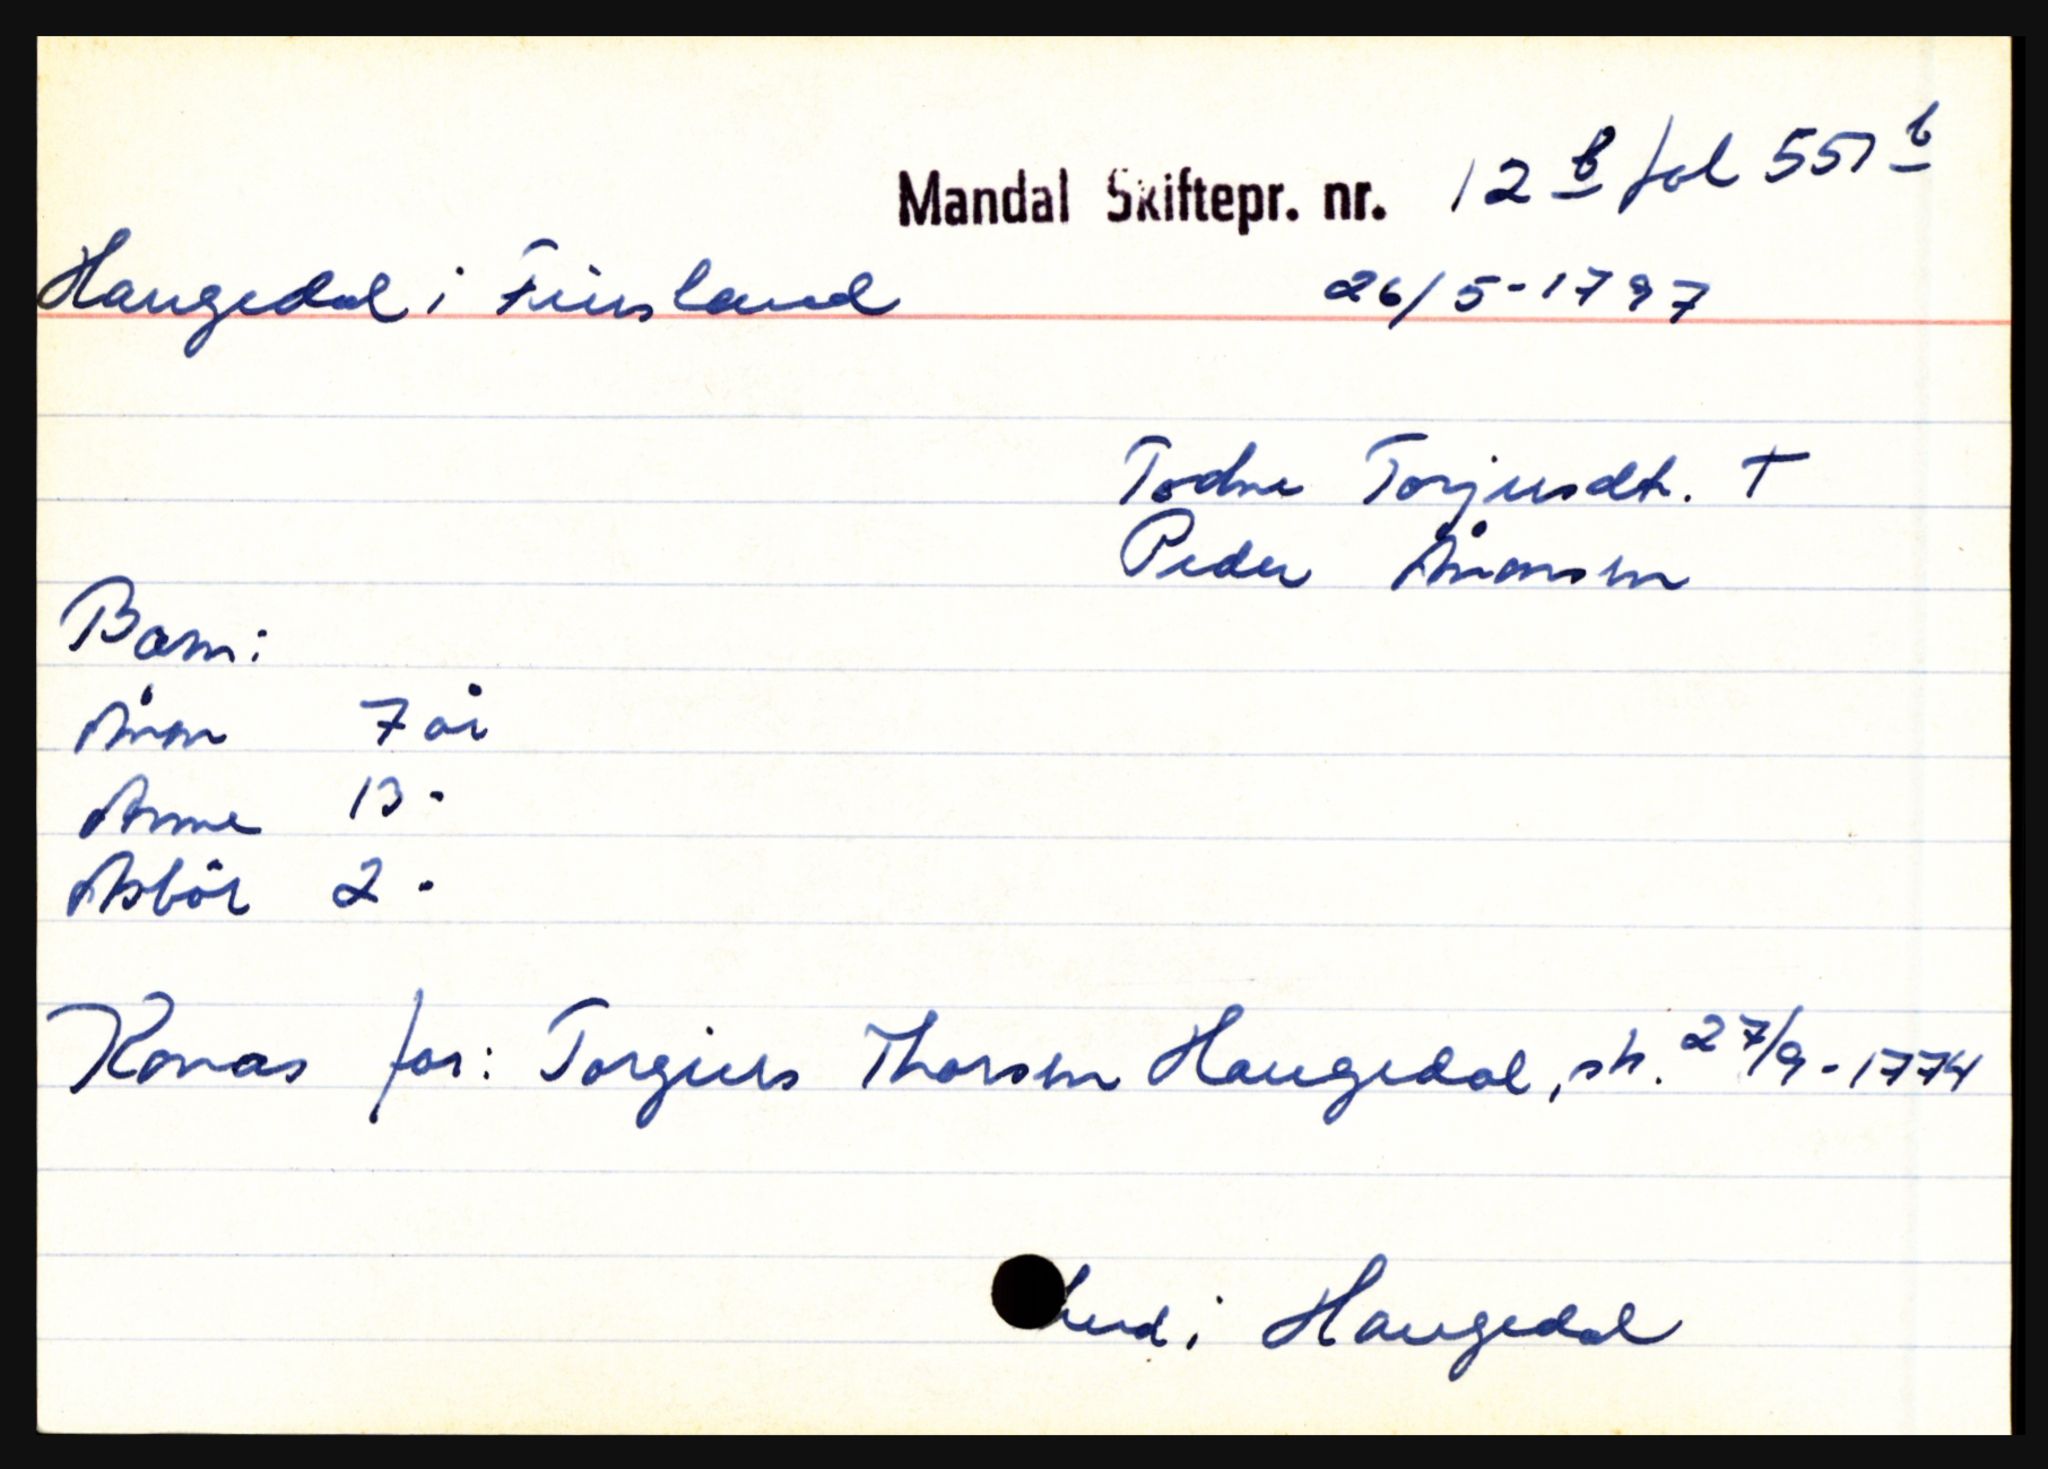 Mandal Skiftepr. nr. 12 b fol 551 b
Haugedal i Finsland 26/5-1797
Todne Torjusdtr. †
Peder Ånonsen
Barn:
Ånon 7 år
Anne 13 -
Asbör 2 -
Konas far: Torgius Thorsen Haugedal, sk. 27/9-1774
i Haugedal